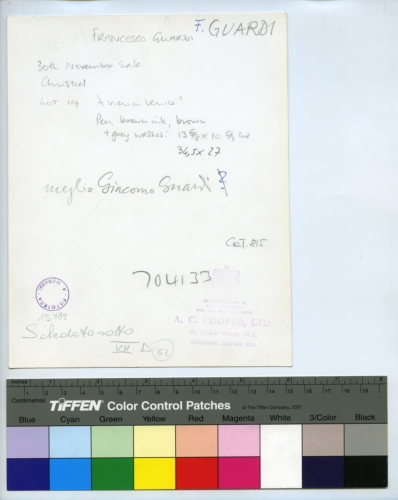 FRANCESCO GUARDI
F. GUARDI
30th November Sale
Christies
LOT 114 'A view in Venice'
Pen, brown ink, brown
+ grey washes.
36,5 x 27
meglio Giacomo Guardi
Cat. 815
704133
FOTOTECA
A. C. COOPER, LTD.
Schedato sotto
VII D 52
inches 1 2 3 4 5 6 7 8
Centimetres 1 2 3 4 5 6 7 8 9 10 11 12 13 14 15 16 17 18 19
TIFFEN Color Control Patches © The Tiffen Company, 2007
Blue Cyan Green Yellow Red Magenta White 3/Color Black